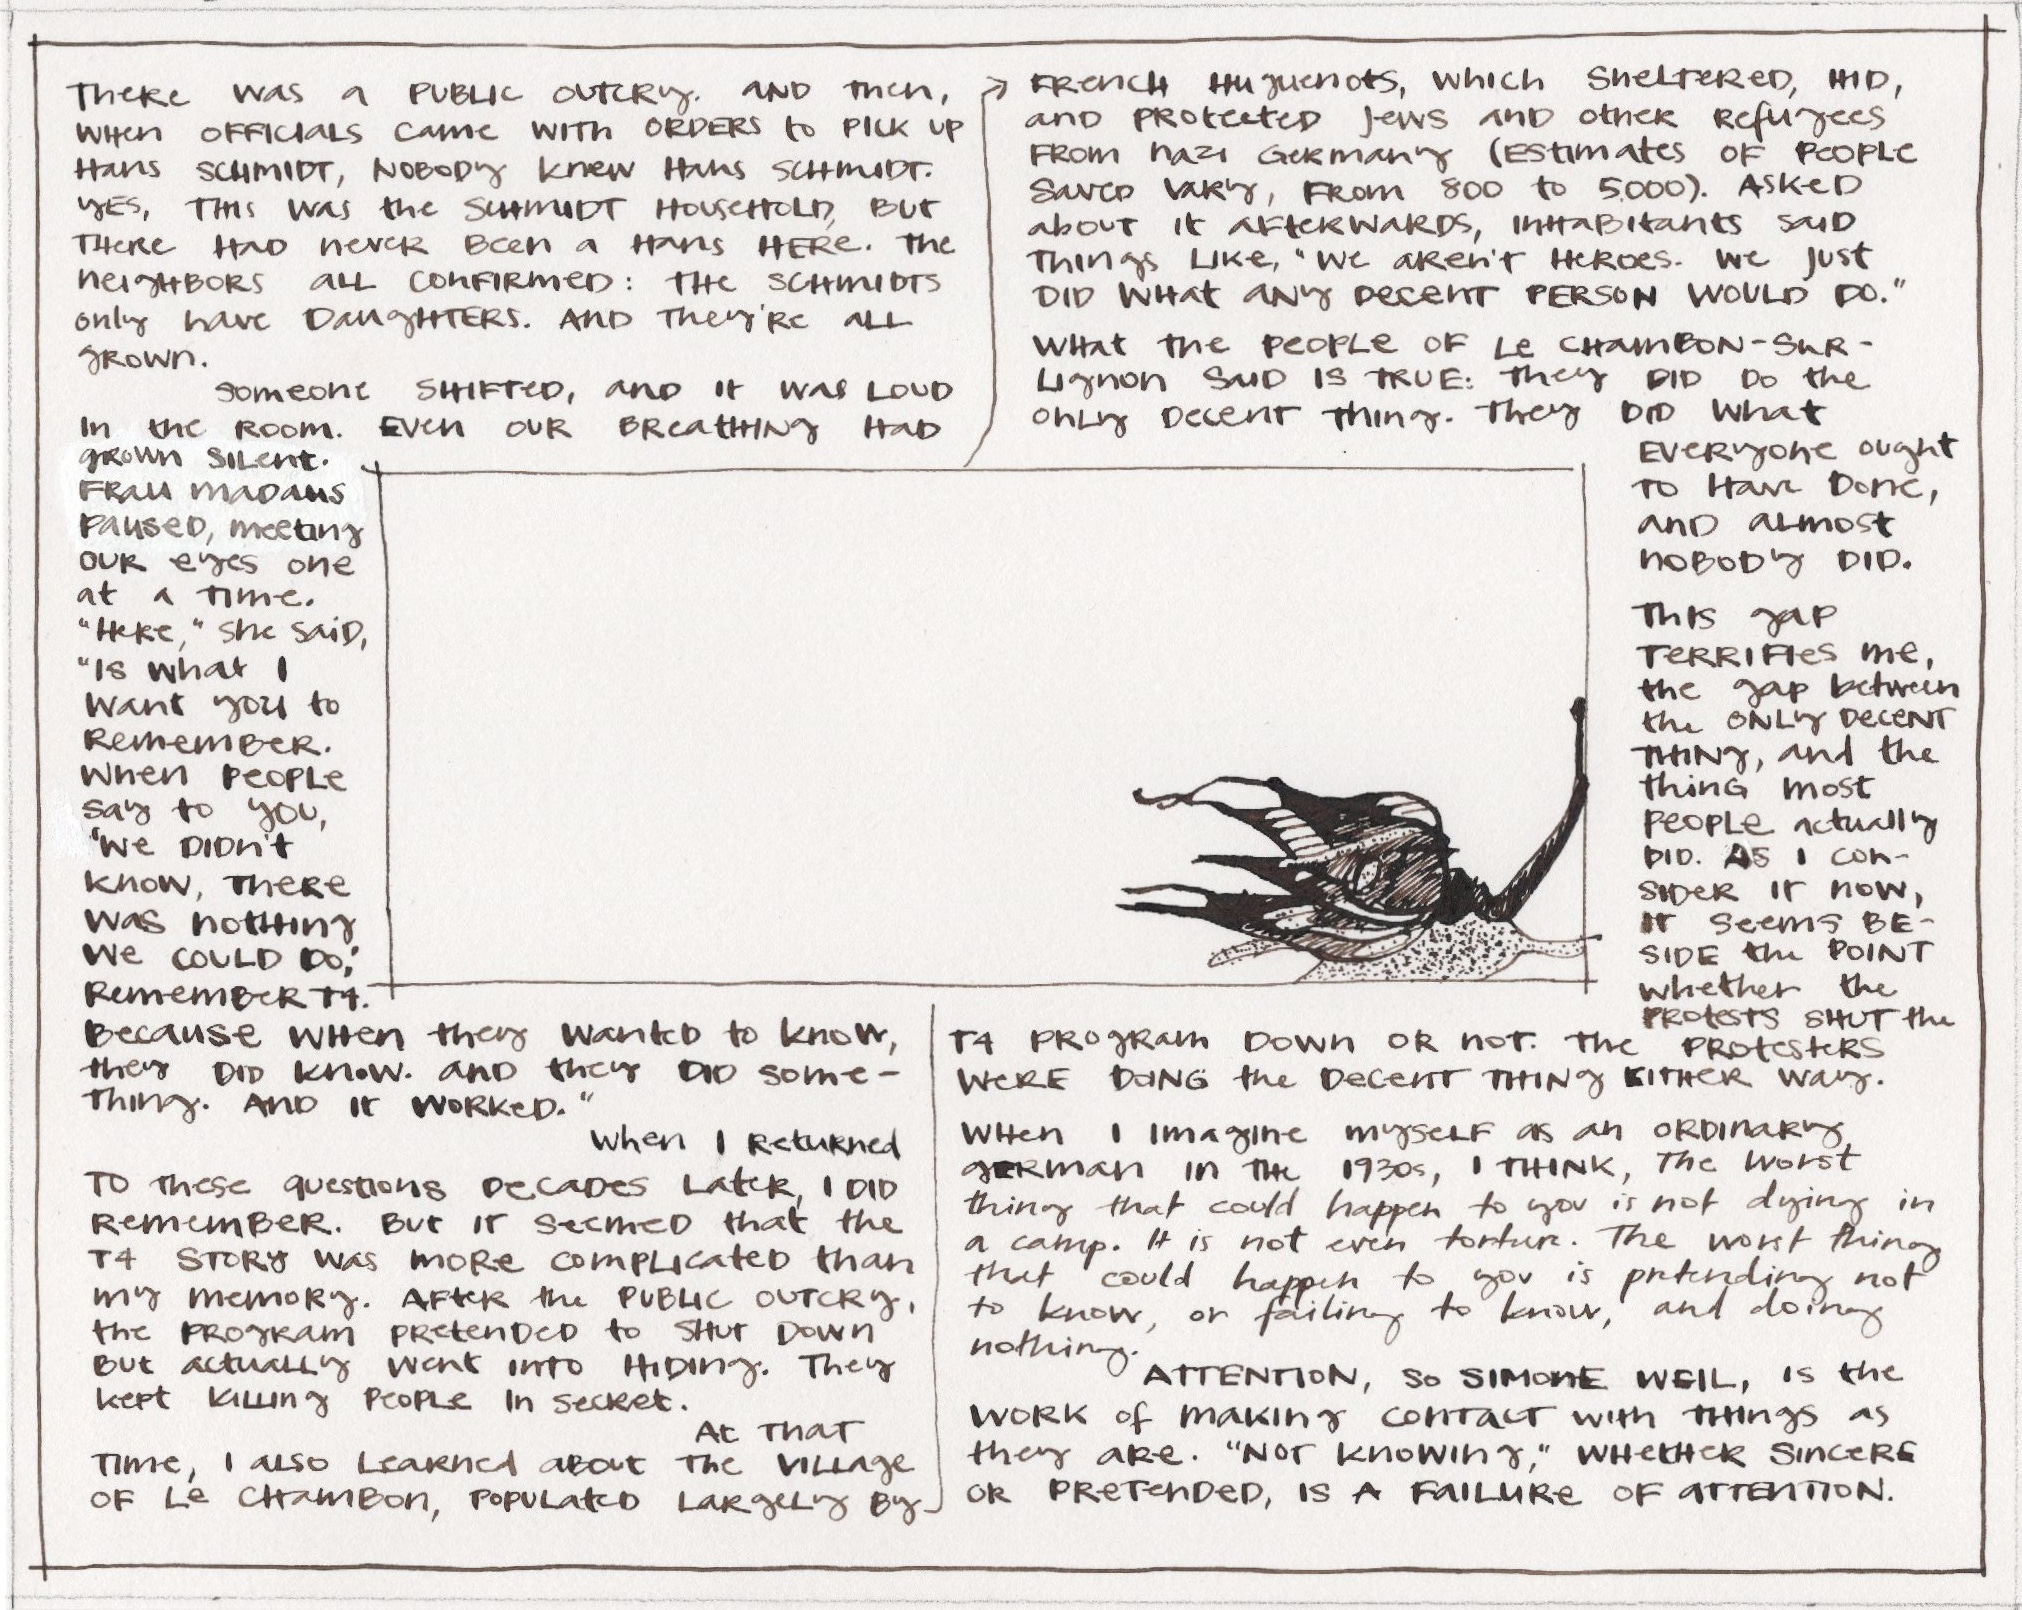 THERE WAS A PUBLIC OUTCRY. AND THEN,
WHEN OFFICIALS CAME WITH ORDERS TO PICK UP
HANS SCHMIDT, NOBODY KNEW HANS SCHMIDT.
YES, THIS WAS THE SCHMIDT HOUSEHOLD, BUT
THERE HAD NEVER BEEN A HANS HERE. THE
NEIGHBORS ALL CONFIRMED: THE SCHMIDTS
ONLY HAVE DAUGHTERS. AND THEY'RE ALL
GROWN.
SOMEONE SHIFTED, AND IT WAS LOUD
IN THE ROOM. EVEN OUR BREATHING HAD
GROWN SILENT.
FRAU MADAUS
PAUSED, MEETING
OUR EYES ONE
AT A TIME.
"HERE," SHE SAID,
"IS WHAT I
WANT YOU TO
REMEMBER.
WHEN PEOPLE
SAY TO YOU,
'WE DIDN'T
KNOW, THERE
WAS NOTHING
WE COULD DO,'
REMEMBER T4.
BECAUSE WHEN THEY WANTED TO KNOW,
THEY DID KNOW. AND THEY DID SOME-
THING. AND IT WORKED."
WHEN I RETURNED
TO THESE QUESTIONS DECADES LATER, I DID
REMEMBER. BUT IT SEEMED THAT THE
T4 STORY WAS MORE COMPLICATED THAN
MY MEMORY. AFTER THE PUBLIC OUTCRY,
THE PROGRAM PRETENDED TO SHUT DOWN
BUT ACTUALLY WENT INTO HIDING. THEY
KEPT KILLING PEOPLE IN SECRET.
AT THAT
TIME, I ALSO LEARNED ABOUT THE VILLAGE
OF LE CHAMBON, POPULATED LARGELY BY
FRENCH HUGUENOTS, WHICH SHELTERED, HID,
AND PROTECTED JEWS AND OTHER REFUGEES
FROM NAZI GERMANY (ESTIMATES OF PEOPLE
SAVED VARY, FROM 800 TO 5000). ASKED
ABOUT IT AFTERWARDS, INHABITANTS SAID
THINGS LIKE, "WE AREN'T HEROES. WE JUST
DID WHAT ANY DECENT PERSON WOULD DO."
WHAT THE PEOPLE OF LE CHAMBON-SUR-
LIGNON SAID IS TRUE: THEY DID DO THE
ONLY DECENT THING. THEY DID WHAT
EVERYONE OUGHT
TO HAVE DONE,
AND ALMOST
NOBODY DID.
THIS GAP
TERRIFIES ME,
THE GAP BETWEEN
THE ONLY DECENT
THING, AND THE
THING MOST
PEOPLE ACTUALLY
DID. AS I CON-
SIDER IT NOW,
IT SEEMS BE-
SIDE THE POINT
WHETHER THE
PROTESTS SHUT THE
T4 PROGRAM DOWN OR NOT. THE PROTESTERS
WERE DOING THE DECENT THING EITHER WAY.
WHEN I IMAGINE MYSELF AS AN ORDINARY
GERMAN IN THE 1930s, I THINK, THE WORST
thing that could happen to you is not dying in
a camp. It is not even torture. The worst thing
that could happen to you is pretending not
to know, or failing to know, and doing
nothing.
ATTENTION, SO SIMONE WEIL, IS THE
WORK OF MAKING CONTACT WITH THINGS AS
THEY ARE. "NOT KNOWING," WHETHER SINCERE
OR PRETENDED, IS A FAILURE OF ATTENTION.